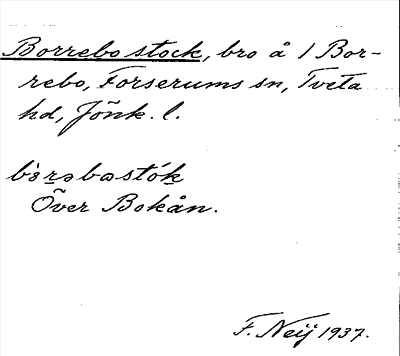 Borrebo stock, bro å 1 Bor-
rebo, Forserums sn, Tveta
hd, Jönk. l.
bòrəbəstók
Över Bokån.
F. Neij 1937.